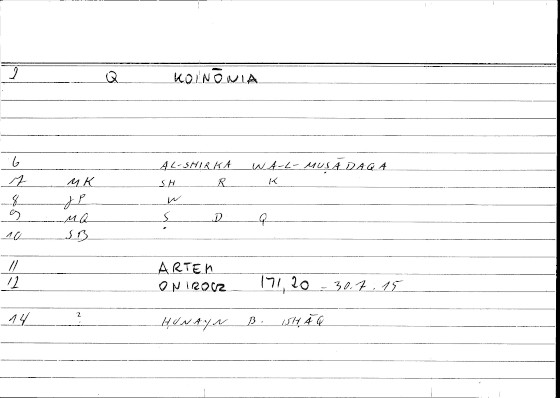 1 Q KOINŌNIA
6 AL-SHIRKA WA-L-MUṢĀDAQA
7 MK SH R K
8 JP W
9 MQ Ṣ D Q
10 SB
11 ARTEM
12 ONIROCR 171,20 - 30.7.15
14 ? ḤUNAYN B. ISḤĀQ